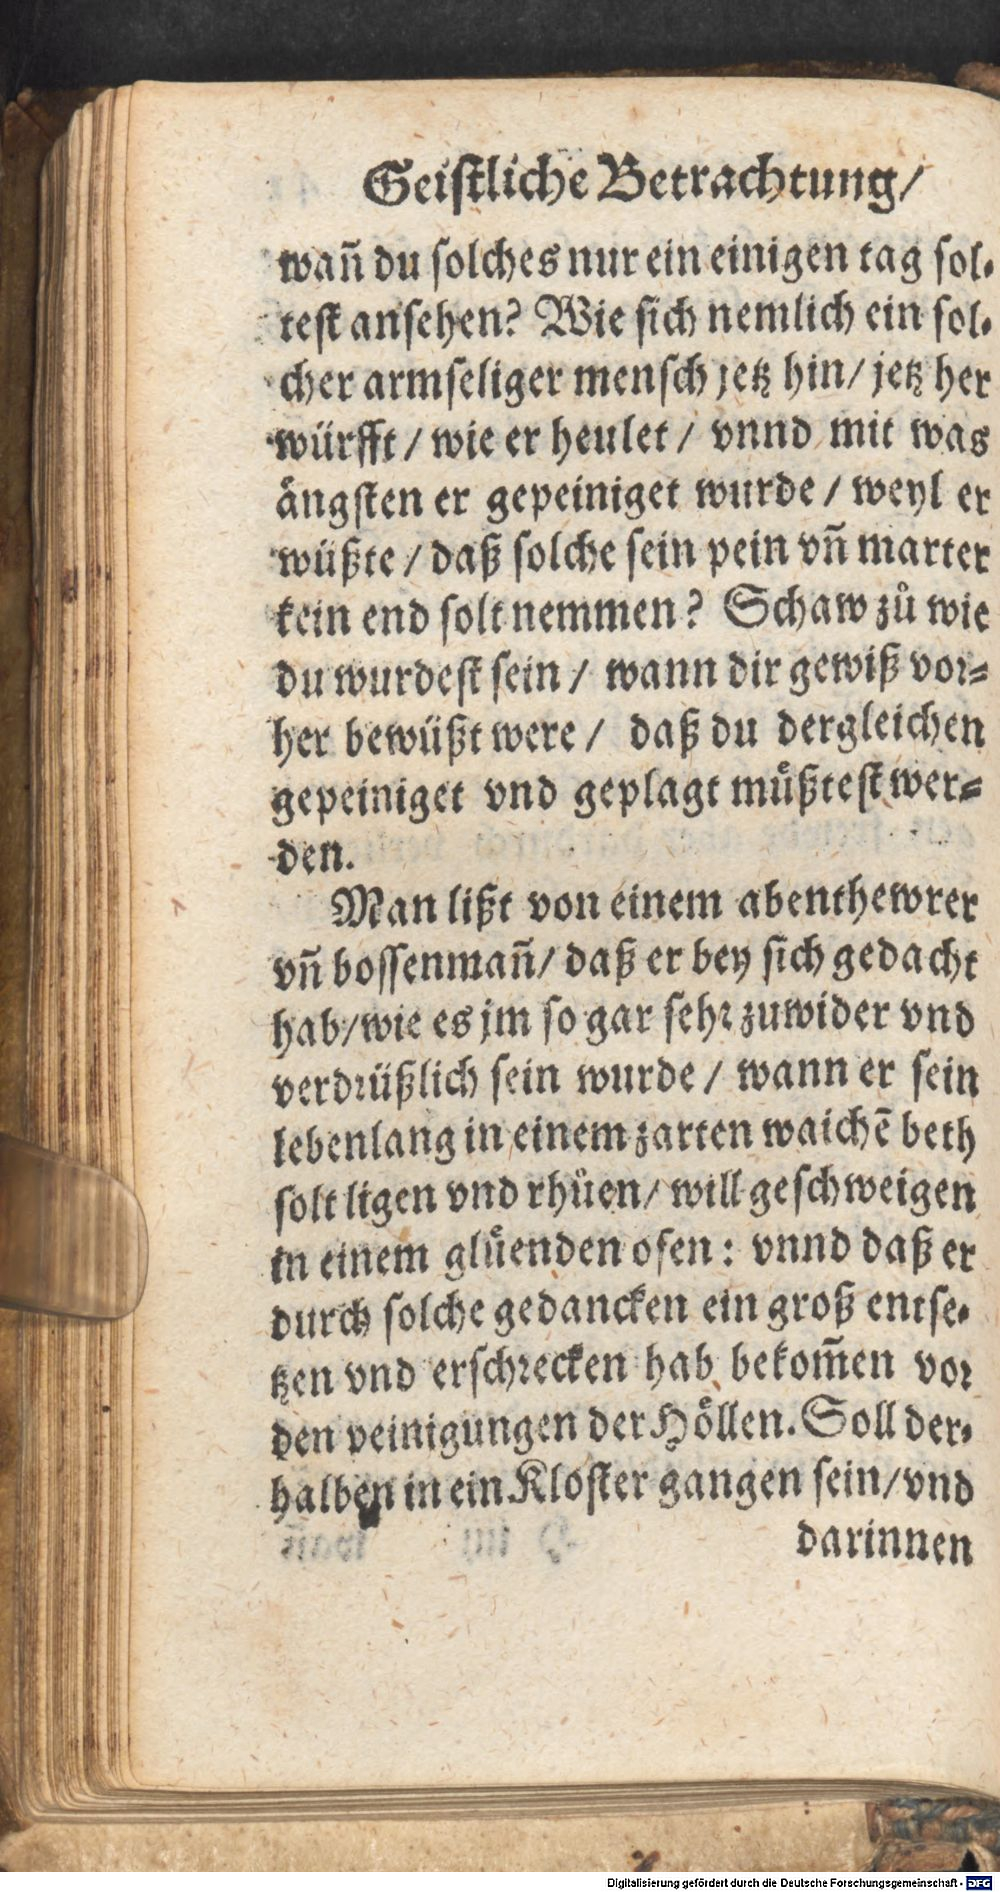 Geiſtliche Betrachtung/
wañ du ſolches nur ein einigen tag ſol-
teſt anſehen? Wie ſich nemlich ein ſol-
cher armſeliger menſch jetz hin/ jetz her
würfft/ wie er heulet/ vnnd mit was
aͤngſten er gepeiniget wurde/ weyl er
wüßte/ daß ſolche ſein pein vñ marter
kein end ſolt nemmen? Schaw zů wie
du wurdeſt ſein/ wann dir gewiß vor-
her bewüßt were/ daß du dergleichen
gepeiniget vnd geplagt muͤßteſt wer-
den.
Man lißt von einem abenthewrer
vñ boſſenmañ/ daß er bey ſich gedacht
hab/ wie es jm ſo gar ſehr zuwider vnd
verdrüßlich ſein wurde/ wann er ſein
lebenlang in einem zarten waichē beth
ſolt ligen vnd rhůen/ will geſchweigen
in einem gluͤenden ofen: vnnd daß er
durch ſolche gedancken ein groß entſe-
tzen vnd erſchrecken hab bekom̃en vor
den peinigungen der Hoͤllen. Soll der-
halben in ein Kloſter gangen ſein/ vnd
darinnen
Digitalisierung gefördert durch die Deutsche Forschungsgemeinschaft - DFG